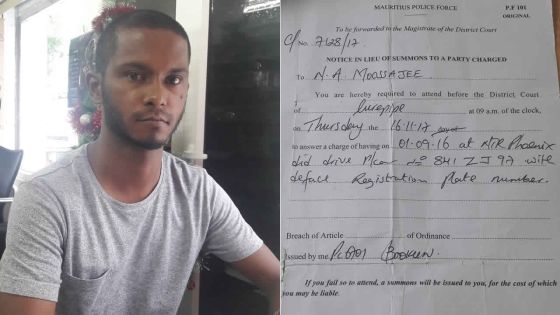 MAURITIUS POLICE FORCE
P.F 101
ORIGINAL
To be forwarded to the Magistrate of the District Court
C/No. 7628/17
NOTICE IN LIEU OF SUMMONS TO A PARTY CHARGED
To N. A. MOOSSAJEE.
You are hereby required to attend before the District Court
of Curepipe at 09 a.m. of the clock,
on Thursday the 16.11.17
to answer a charge of having on 01.09.16 at Phoenix
did drive P/car No 841 ZJ 97 with
deface Registration plate number.
Breach of Article of Ordinance
Issued by me BOOKUN
If you fail so to attend, a summons will be issued to you, for the cost of which
you may be liable.